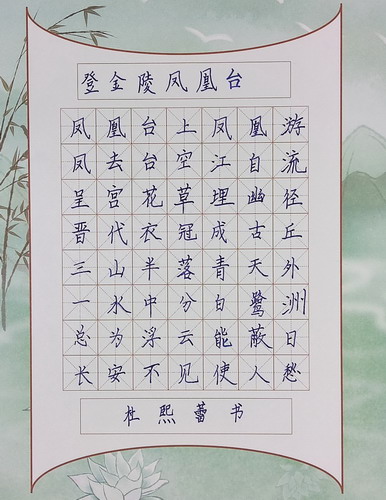 登金陵凤凰台
凤凰台上凤凰游
凤去台空江自流
呈宫花草埋幽径
晋代衣冠成古丘
三山半落青天外
一水中分白鹭洲
总为浮云能蔽日
长安不见使人愁
杜熙蕾书